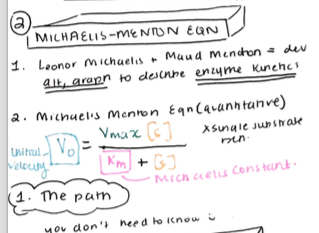 2
MICHAELIS-MENTON EQN
1. Leonor Michaelis + Maud Menton = dev
alt, graph to describe enzyme kinetics
2. Michaelis Menton Eqn (quantitative)
initial velocity Vo = Vmax [s] / Km + [s] x single substrate rxn.
Michaelis constant.
1. The path
you don't need to know